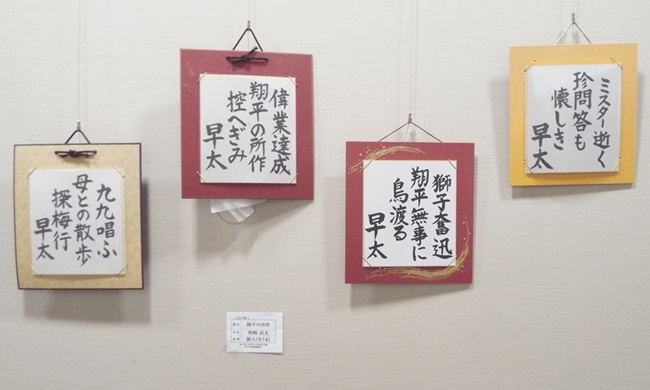 九九唱ふ
母との散歩
探梅行
早太
偉業達成
翔平の所作
控へぎみ
早太
獅子奮迅
翔平無事に
鳥渡る
早太
ミスター逝く
珍問答も
懐しき
早太
翔平の所作